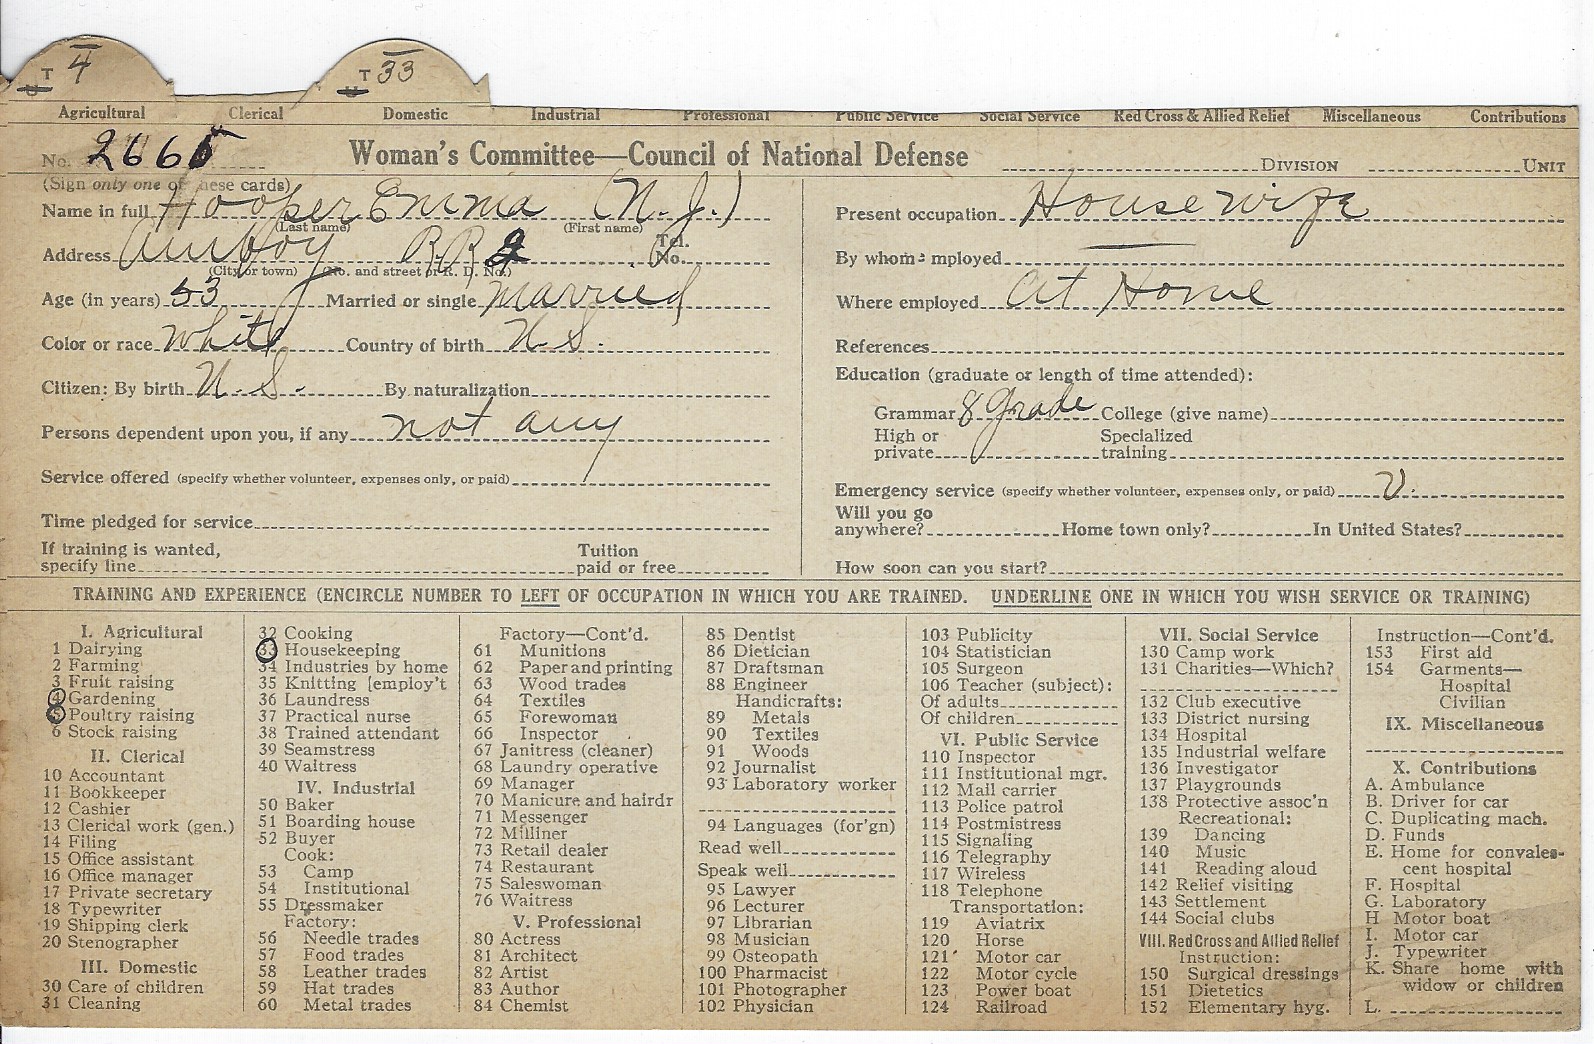 T 4 T 33
Agricultural Clerical Domestic Industrial Professional Public Service Social Service Red Cross & Allied Relief Miscellaneous Contributions
No. 2665 Woman's Committee—Council of National Defense DIVISION UNIT
(Sign only one of these cards)
Name in full Hooper Emma (N. J.)
(Last name) (First name)
Address Amboy R.R. 2 Tel. No.
(City or town) (No. and street or R. D. No.)
Age (in years) 53 Married or single Married
Color or race White Country of birth U. S.
Citizen: By birth U. S. By naturalization
Persons dependent upon you, if any not any
Service offered (specify whether volunteer, expenses only, or paid)
Time pledged for service
If training is wanted, specify line Tuition paid or free
Present occupation Housewife
By whom employed —
Where employed At Home
References
Education (graduate or length of time attended):
Grammar 8 Grade College (give name)
High or private Specialized training
Emergency service (specify whether volunteer, expenses only, or paid) V.
Will you go anywhere? Home town only? In United States?
How soon can you start?
TRAINING AND EXPERIENCE (ENCIRCLE NUMBER TO LEFT OF OCCUPATION IN WHICH YOU ARE TRAINED. UNDERLINE ONE IN WHICH YOU WISH SERVICE OR TRAINING)
I. Agricultural
1 Dairying
2 Farming
3 Fruit raising
4 Gardening
5 Poultry raising
6 Stock raising
II. Clerical
10 Accountant
11 Bookkeeper
12 Cashier
13 Clerical work (gen.)
14 Filing
15 Office assistant
16 Office manager
17 Private secretary
18 Typewriter
19 Shipping clerk
20 Stenographer
III. Domestic
30 Care of children
31 Cleaning
32 Cooking
33 Housekeeping
34 Industries by home
35 Knitting [employ't
36 Laundress
37 Practical nurse
38 Trained attendant
39 Seamstress
40 Waitress
IV. Industrial
50 Baker
51 Boarding house
52 Buyer
Cook:
53 Camp
54 Institutional
55 Dressmaker
Factory:
56 Needle trades
57 Food trades
58 Leather trades
59 Hat trades
60 Metal trades
Factory—Cont'd.
61 Munitions
62 Paper and printing
63 Wood trades
64 Textiles
65 Forewoman
66 Inspector
67 Janitress (cleaner)
68 Laundry operative
69 Manager
70 Manicure and hairdr
71 Messenger
72 Milliner
73 Retail dealer
74 Restaurant
75 Saleswoman
76 Waitress
V. Professional
80 Actress
81 Architect
82 Artist
83 Author
84 Chemist
85 Dentist
86 Dietician
87 Draftsman
88 Engineer
Handicrafts:
89 Metals
90 Textiles
91 Woods
92 Journalist
93 Laboratory worker
94 Languages (for'gn)
Read well
Speak well
95 Lawyer
96 Lecturer
97 Librarian
98 Musician
99 Osteopath
100 Pharmacist
101 Photographer
102 Physician
103 Publicity
104 Statistician
105 Surgeon
106 Teacher (subject):
Of adults
Of children
VI. Public Service
110 Inspector
111 Institutional mgr.
112 Mail carrier
113 Police patrol
114 Postmistress
115 Signaling
116 Telegraphy
117 Wireless
118 Telephone
Transportation:
119 Aviatrix
120 Horse
121 Motor car
122 Motor cycle
123 Power boat
124 Railroad
VII. Social Service
130 Camp work
131 Charities—Which?
132 Club executive
133 District nursing
134 Hospital
135 Industrial welfare
136 Investigator
137 Playgrounds
138 Protective assoc'n
Recreational:
139 Dancing
140 Music
141 Reading aloud
142 Relief visiting
143 Settlement
144 Social clubs
VIII. Red Cross and Allied Relief
Instruction:
150 Surgical dressings
151 Dietetics
152 Elementary hyg.
Instruction—Cont'd.
153 First aid
154 Garments—
Hospital
Civilian
IX. Miscellaneous
X. Contributions
A. Ambulance
B. Driver for car
C. Duplicating mach.
D. Funds
E. Home for convales-
cent hospital
F. Hospital
G. Laboratory
H Motor boat
I. Motor car
J. Typewriter
K. Share home with
widow or children
L.